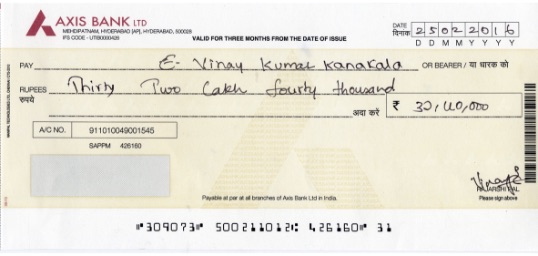 AXIS BANK LTD
MEHDIPATNAM, HYDERABAD [AP], HYDERABAD, 500028
IFS CODE - UTIB0000426
VALID FOR THREE MONTHS FROM THE DATE OF ISSUE
DATE दिनांक 25022016
D D M M Y Y Y Y
PAY E. Vinay Kumar Kanakala OR BEARER / या धारक को
RUPEES रुपये Thirty Two Lakh fourty thousand
अदा करें ₹ 32,40,000
A/C NO. 911010049001545
SAPPM 426160
Payable at par at all branches of Axis Bank Ltd in India.
Please sign above
"309073" 500211012: 426160" 31